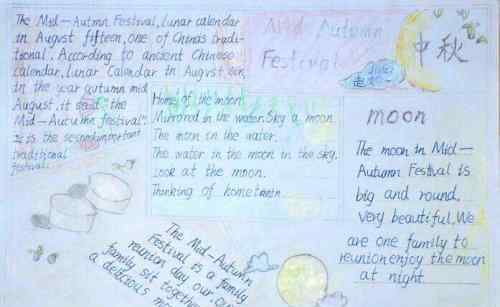 The Mid-Autmn Festival, lunar calendar
in Augvst fifteen, one of China's tradi-
tional. According to ancient Chinese
calendar, lunar Calandar in Augvst een,
in the year autumn mid
August, it said the
Mid-Autumn festival".
is the second important
traditional
festival.
Mid Autumn
Festival
中秋
Home of the moon
Mirrored in the water. Sky a moon
The moon in the water.
The water in the moon in the sky.
Look at the moon.
Thinking of hometown
moon
The moon in Mid-
Autumn Festival is
big and round.
Very beautiful. We
are one family to
reunion enjoy the moon
at night.
The Mid-Autumn
Festival is a family
reunion day. our
family sit together
a delicious